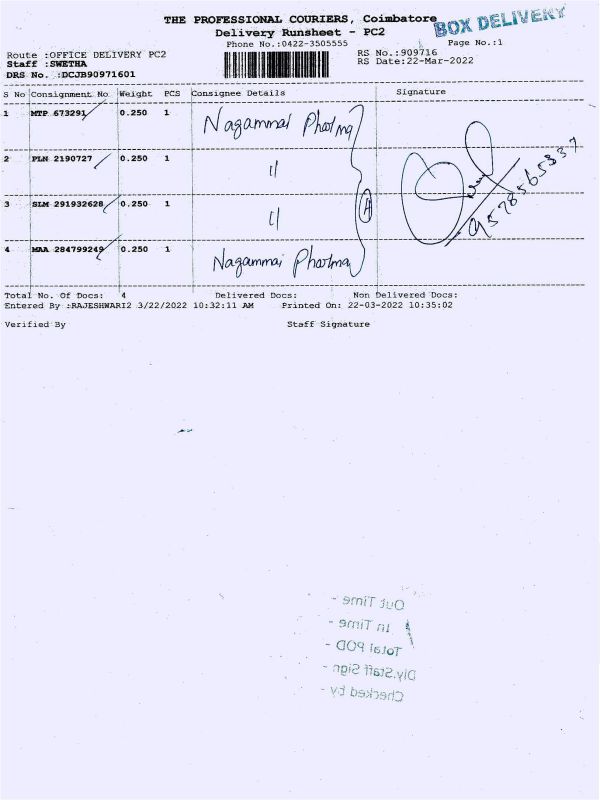 THE PROFESSIONAL COURIERS, Coimbatore
BOX DELIVERY
Delivery Runsheet - PC2
Phone No.:0422-3505555
Page No.:1
Route :OFFICE DELIVERY PC2
RS No.:909716
Staff :SWETHA
RS Date:22-Mar-2022
DRS No. :DCJB90971601
S No Consignment No Weight PCS Consignee Details Signature
1 MTP 673291 0.250 1 Nagammai Pharma
2 PLN 2190727 0.250 1 "
3 SLM 291932628 0.250 1 "
4 MAA 284799249 0.250 1 Nagammai Pharma
9578565337
Total No. Of Docs: 4 Delivered Docs: Non Delivered Docs:
Entered By :RAJESHWARI2 3/22/2022 10:32:11 AM Printed On: 22-03-2022 10:35:02
Verified By Staff Signature
Out Time -
In Time -
Total POD -
Dly.Staff Sign -
Checked by -